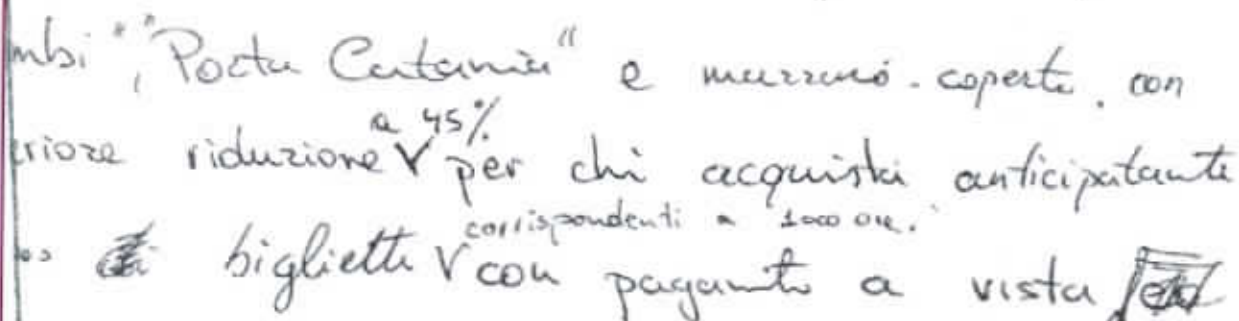 mbi", "Porta Catania" e mezzano coperte. con
eriore riduzione V a 45% per chi acquisti anticipatamte
di biglietti V corrispondenti a 1000 ore. con pagamto a vista